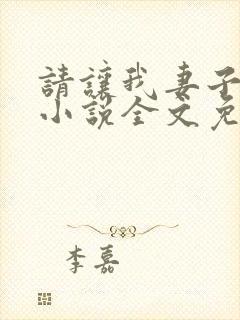 請讓我妻子
小說全文免
李嘉